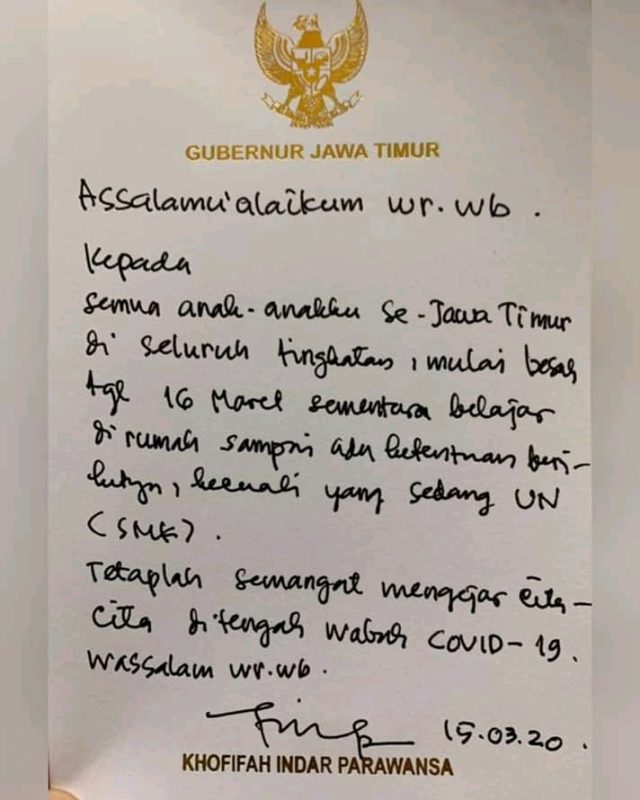 GUBERNUR JAWA TIMUR
Assalamu'alaikum wr.wb.
Kepada
Semua anak-anakku Se-Jawa Timur
di seluruh tingkatan, mulai besok
tgl 16 Maret sementara belajar
di rumah sampai ada ketentuan beri-
kutnya, kecuali yang sedang UN
(SMK).
Tetaplah semangat mengejar cita-
cita di tengah wabah COVID-19.
Wassalam wr.wb.
15.03.20.
KHOFIFAH INDAR PARAWANSA